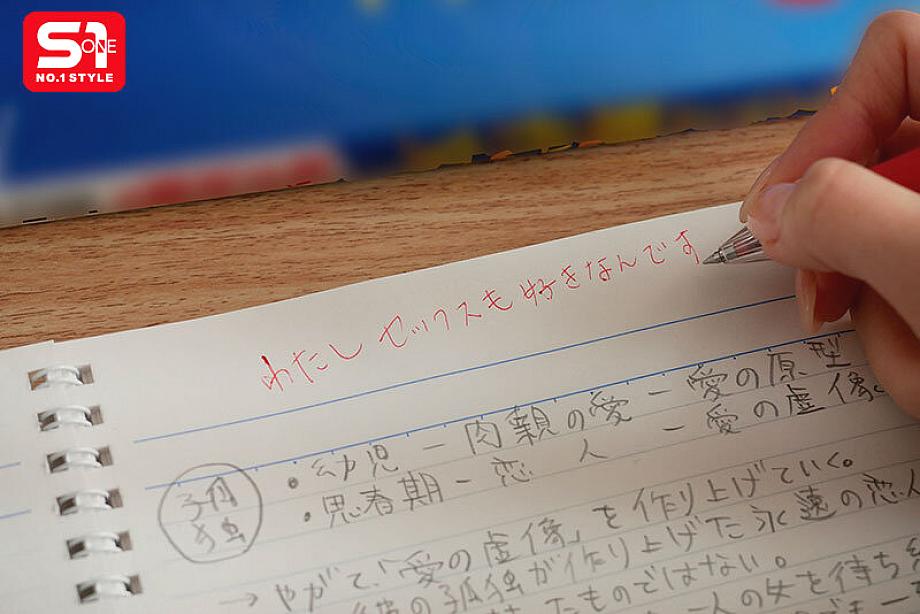 S1
ONE
NO.1 STYLE
わたし セックスも 好きなんです
・幼児 ー 肉親の愛 ー 愛の原型
・思春期 ー 恋 人 ー 愛の虚像。
孤独
→ やがて、「愛の虚像」を作り上げていく。
の孤独が作り上げた永遠の恋人
たものではない。
一人の女を待ち